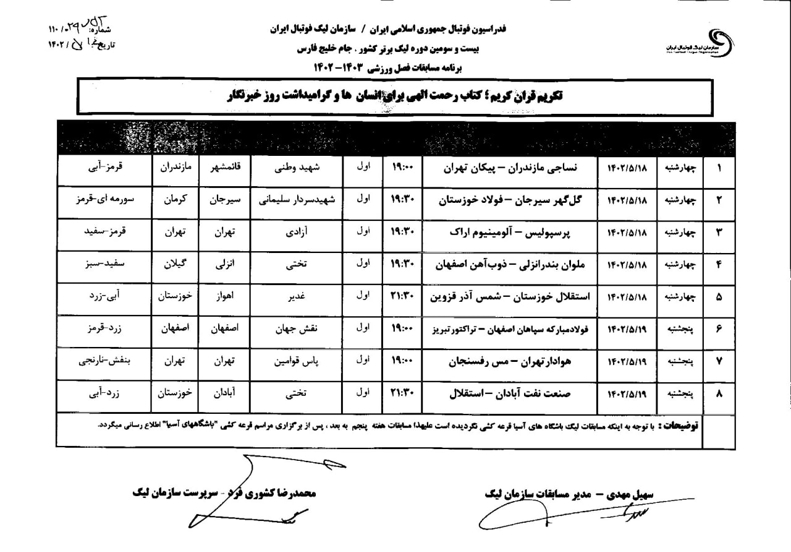 سازمان لیگ فوتبال ایران
فدراسیون فوتبال جمهوری اسلامی ایران / سازمان لیگ فوتبال ایران
بیست و سومین دوره لیگ برتر کشور . جام خلیج فارس
برنامه مسابقات فصل ورزشی ۱۴۰۳-۱۴۰۲
شماره:
تاریخ:
تکریم قران کریم ؛ کتاب رحمت الهی برای انسان ها و گرامیداشت روز خبرنگار
۱ چهارشنبه ۱۴۰۲/۵/۱۸ نساجی مازندران – پیکان تهران ۱۹:۰۰ اول شهید وطنی قائمشهر مازندران قرمز-آبی
۲ چهارشنبه ۱۴۰۲/۵/۱۸ گل‌گهر سیرجان – فولاد خوزستان ۱۹:۳۰ اول شهیدسردار سلیمانی سیرجان کرمان سورمه ای-قرمز
۳ چهارشنبه ۱۴۰۲/۵/۱۸ پرسپولیس – آلومینیوم اراک ۱۹:۳۰ اول آزادی تهران تهران قرمز-سفید
۴ چهارشنبه ۱۴۰۲/۵/۱۸ ملوان بندرانزلی – ذوب‌آهن اصفهان ۱۹:۳۰ اول تختی انزلی گیلان سفید-سبز
۵ چهارشنبه ۱۴۰۲/۵/۱۸ استقلال خوزستان – شمس آذر قزوین ۲۱:۳۰ اول غدیر اهواز خوزستان آبی-زرد
۶ پنجشنبه ۱۴۰۲/۵/۱۹ فولادمبارکه سپاهان اصفهان – تراکتورتبریز ۱۹:۰۰ اول نقش جهان اصفهان اصفهان زرد-قرمز
۷ پنجشنبه ۱۴۰۲/۵/۱۹ هوادارتهران – مس رفسنجان ۱۹:۰۰ اول پاس قوامین تهران تهران بنفش-نارنجی
۸ پنجشنبه ۱۴۰۲/۵/۱۹ صنعت نفت آبادان – استقلال ۲۱:۳۰ اول تختی آبادان خوزستان زرد-آبی
توضیحات : با توجه به اینکه مسابقات لیگ باشگاه های آسیا قرعه کشی نگردیده است علیهذا مسابقات هفته پنجم به بعد ، پس از برگزاری مراسم قرعه کشی "باشگاههای آسیا" اطلاع رسانی میگردد.
سهیل مهدی – مدیر مسابقات سازمان لیگ
محمدرضا کشوری فرد - سرپرست سازمان لیگ